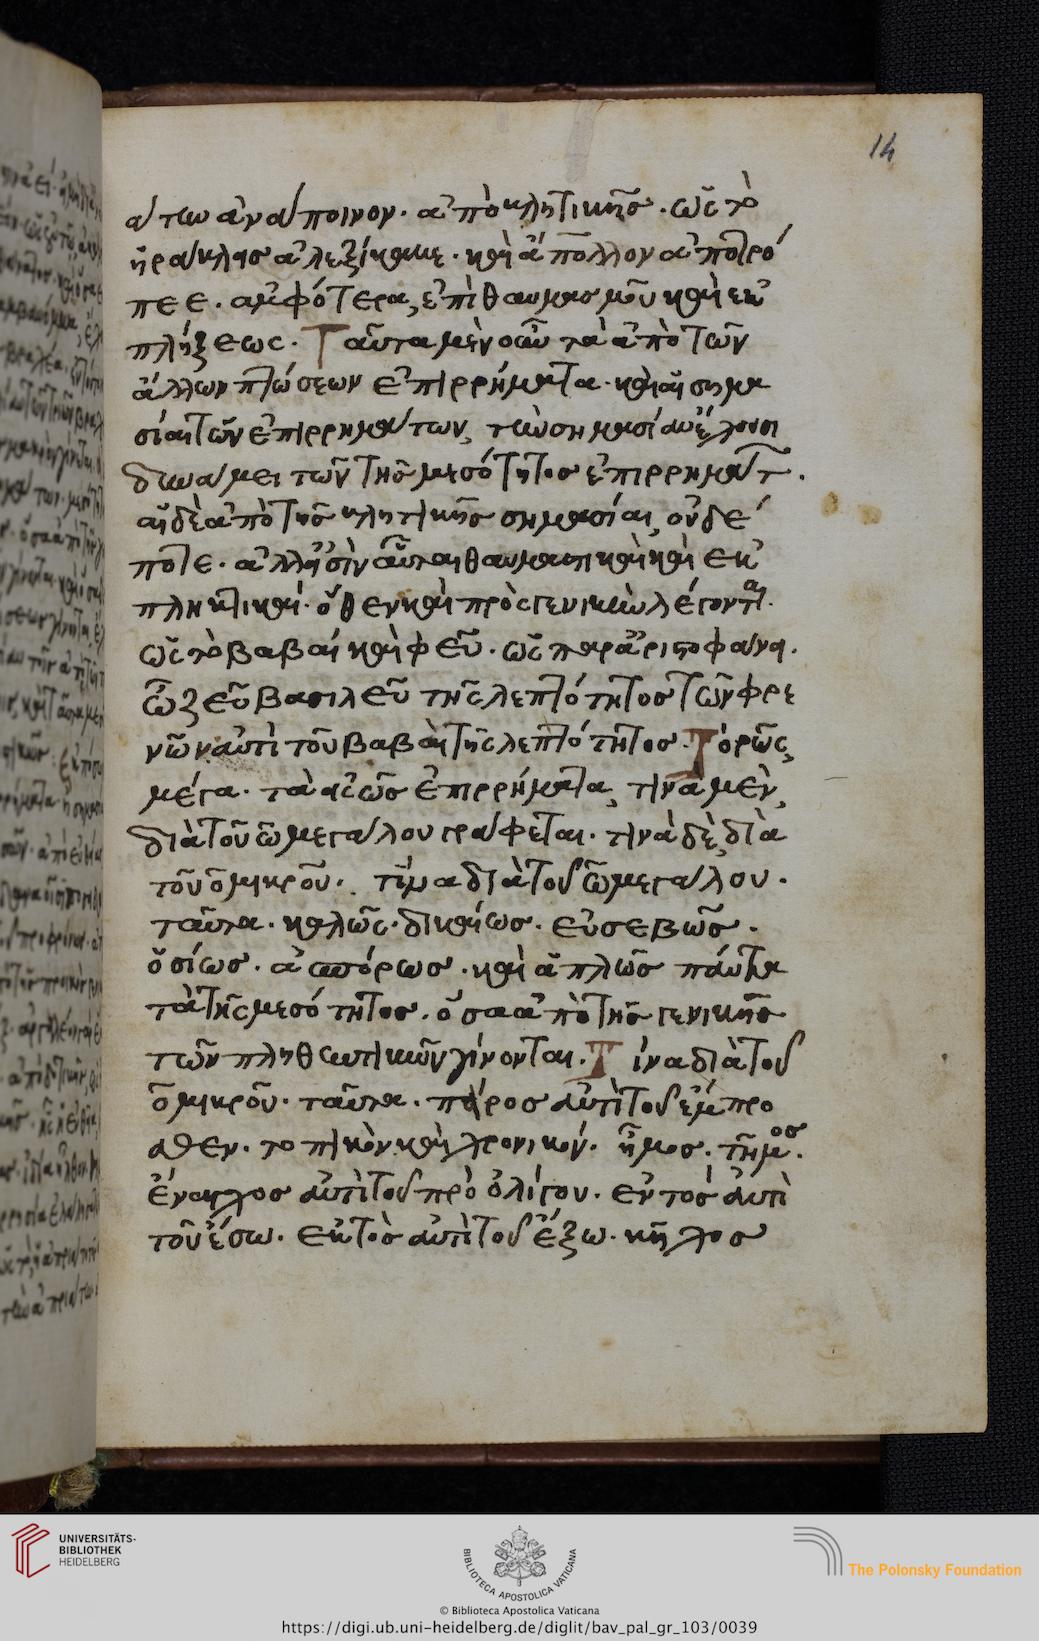 14
άτων ἀνάποινον. ἀπὸ κλητικῆς. ὡς τὸ
ἡράκλησ ἀλεξίκακε. καὶ ἄπολλον ἀποτρό
πεε. ἀμφότερα, ἐπὶ θαυμασμοῦ καὶ ἐκ
πλήξεως. Ταῦτα μὲν οὖν τὰ ἀπὸ τῶν
ἄλλων πτώσεων ἐπιρρήματα. καὶ αἱ σημα
σίαι τῶν ἐπιρρημάτων, τὴν σημασίαν ἔχουσι
δυνάμει τῶν τῆς μεσότητος ἐπιρρημάτ.
αἱ δὲ ἀπὸ τῆς κλητικῆς σημασίαι, οὐδέ
ποτε. ἀλλ' εἰσὶν αὗται θαυμαστικαὶ καὶ ἐκ
πληκτικαί. ὅθεν καὶ πρὸς γενικὴν λέγονται.
ὡς τὸ βαβαὶ καὶ φεῦ. ὡς παρ' ἀριστοφάνει.
ὦ ζεῦ βασιλεῦ τῆς λεπτότητος τῶν φρε
νῶν. ἀντὶ τοῦ βαβαὶ τῆς λεπτότητος. Τὸ ρῶς,
μέγα. τὰ εἰς ως ἐπιρρήματα, τινὰ μὲν,
διὰ τοῦ ὦ μεγάλου γράφεται. τινὰ δὲ, διὰ
τοῦ ὂ μικροῦ. τίνα διὰ τοῦ ὦ μεγάλου.
ταῦτα. καλῶς. δικαίως. εὐσεβῶς.
ὁσίως. ἀπόρως. καὶ ἁπλῶς πάντα
τὰ τῆς μεσότητος. ὅσα ἀπὸ τῆς γενικῆς
τῶν πληθυντικῶν γίνονται. Τίνα διὰ τοῦ
ὂ μικροῦ. ταῦτα. πάρος ἀντὶ τοῦ ἔμπρο
σθεν. τοπικὸν καὶ χρονικόν. ἦμος. τῆμος.
ἔναγχος ἀντὶ τοῦ πρὸ ὀλίγου. ἐντὸς ἀντὶ
τοῦ ἔσω. ἐκτὸς ἀντὶ τοῦ ἔξω. κῆχος
UNIVERSITÄTS-
BIBLIOTHEK
HEIDELBERG
BIBLIOTECA APOSTOLICA VATICANA
The Polonsky Foundation
© Biblioteca Apostolica Vaticana
https://digi.ub.uni-heidelberg.de/diglit/bav_pal_gr_103/0039